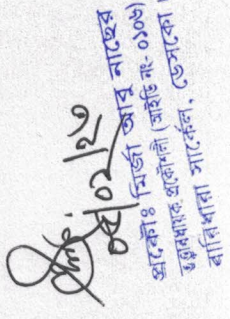 ০৫/০২/২৩
প্রকৌঃ মির্জা আবু নাছের
তত্ত্বাবধায়ক প্রকৌশলী (আইডি নং- ০১০৬)
বারিধারা সার্কেল, ডেসকো।